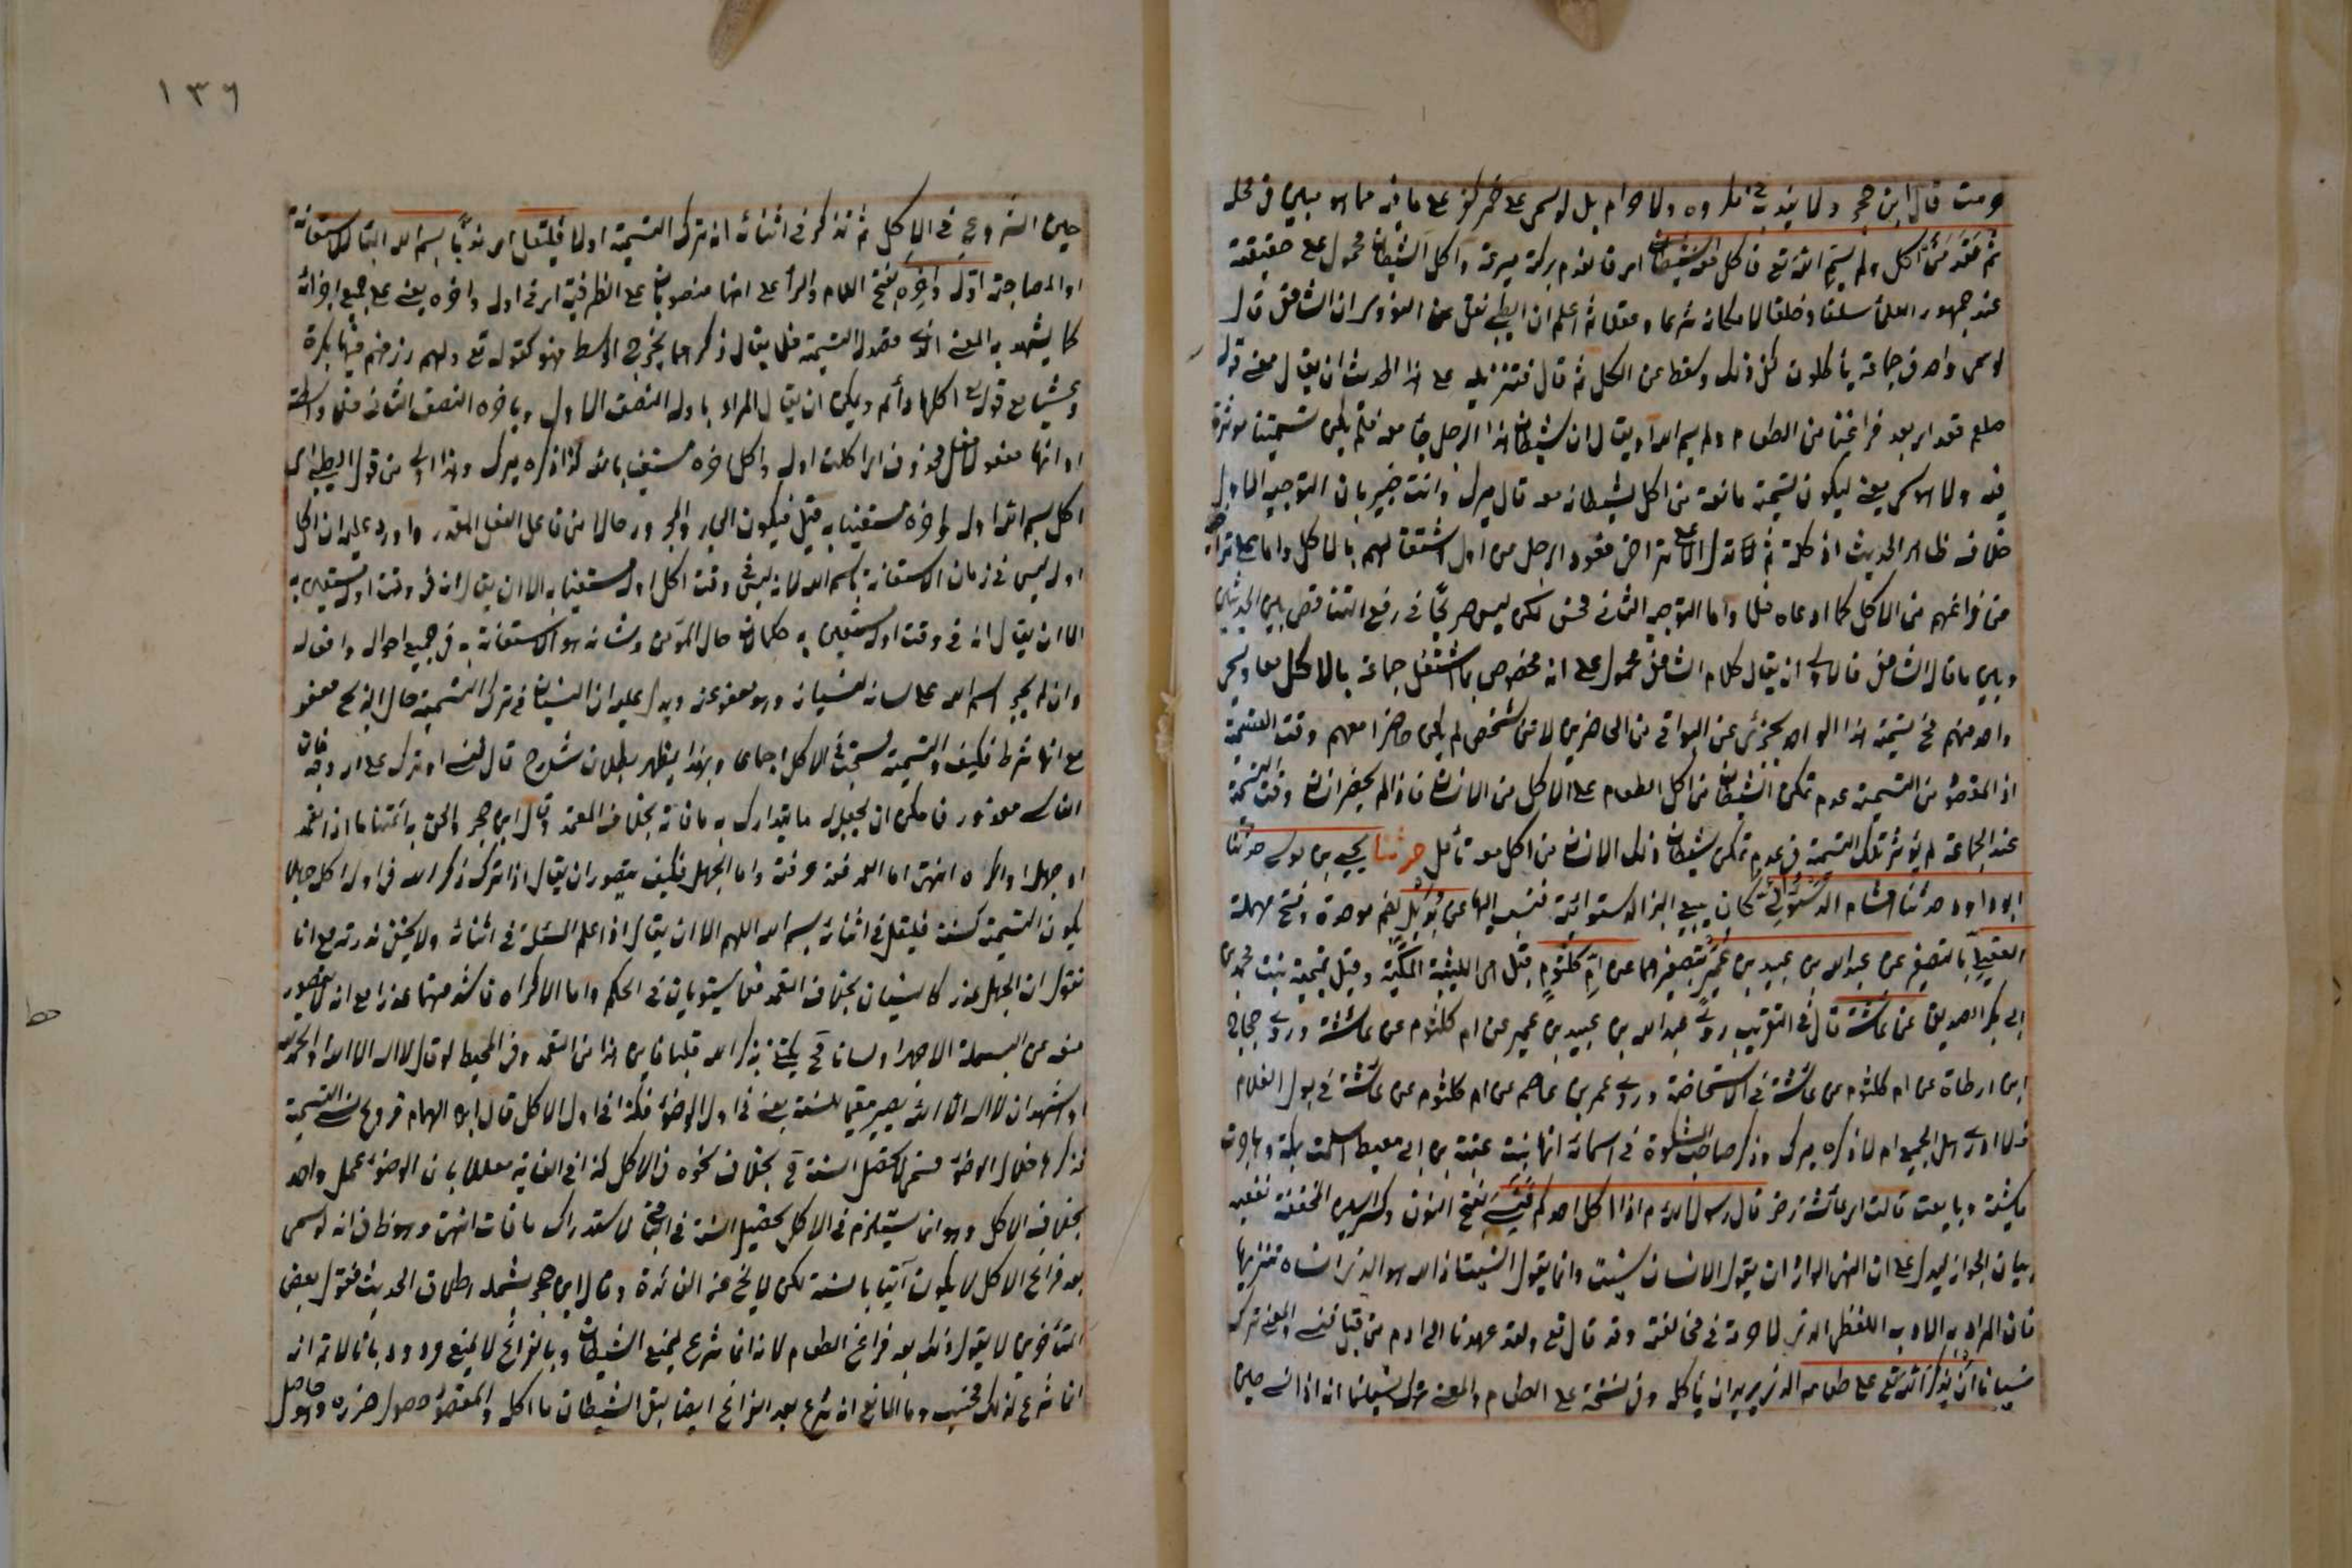 حرمت قال ابن حجر ولا يندب في مكروه ولا حرام بل لو سمى على خمر كفر على ما فيه مما هو مبين في محله
ثم قعد من اكل ولم يسم الله تع فاكل معه الشيطان اي فانعدم بركته بسرعة واكل الشيطان محمول على حقيقته
عند جمهور العلماء سلفا وخلفا لامكانه شرعا وعقلا ثم اعلم ان الطيبي نقل عن النووي ان الشافعي قال
لو سمى واحد في جماعة يأكلون كفى ذلك وسقط عن الكل ثم قال فتنزيله على هذا الحديث ان يقال معنى قوله
صلعم قعد اي بعد فراغنا من الطعام ولم يسم الله او يقال ان شيطان هذا الرجل جاء معه فلم يكن تسميتنا مؤثرة
فيه ولا هو سمى يعني ليكون تسميته مانعة من اكل شيطانه معه قال ميرك وانت خبير بان التوجيه الاول
خلاف ظاهر الحديث اذ كلمة ثم لا تدل الا على تراخي قعود الرجل من اول اشتغالهم بالاكل واما على تراخيه
من فراغهم من الاكل كما ادعاه فلا واما التوجيه الثاني فحسن لكن ليس صريحا في رفع التناقض بين الحديثين
وبين ما قال الشافعي فالاولى ان يقال كلام الشافعي محمول على انه مخصوص بما اشتغل جماعة بالاكل معا وسمى
واحد منهم فح تسمية هذا الواحد يجزئ عن البواقي من الحاضرين لا من شخص لم يكن حاضرا معهم وقت التسمية
اذ المقصود من التسمية عدم تمكن الشيطان من اكل الطعام على الاكل من الانسان فاذا لم يحضر انسان وقت التسمية
عند الجماعة لم يؤثر تلك التسمية في عدم تمكن شيطان ذلك الانسان من اكل معه تأمل حدثنا يحيى بن موسى حدثنا
ابو داود حدثنا هشام الدستوائي كان يبيع البز الدستوائية فنسب اليها عن بديل بضم موحدة وفتح مهملة
العقيلي بالتصغير عن عبد الله بن عبيد بن عمير بتصغيرهما عن ام كلثوم قيل هي الليثية المكية وقيل تيمية بنت محمد بن
ابي بكر الصديق عن عائشة قال في التقريب روى عبد الله بن عبيد بن عمير عن ام كلثوم عن عائشة وروى حجاج
ابن ارطاة عن ام كلثوم عن عائشة في الاستحاضة وروى عمر بن عاصم عن ام كلثوم عن عائشة في بول الغلام
فلا ادرى هل الجميع ام لا ذكره ميرك وذكر صاحب المشكوة في اسمائه انها بنت عقبة بن ابي معيط اسلمت بمكة وهاجرت
ماشية وبايعت قالت اي عائشة رض قال رسول الله م اذا اكل احدكم فنسى بفتح النون وكسر السين المخففة ففيه
بيان الجواز ليدل على ان النهي الوارد ان يقول الانسان نسيت وانما يقول انسيت اذ الله هو الذي انساه تنزيها
فان المراد به الادب اللفظي الذي لا حرمة في مخالفته وقد قال تع ولقد عهدنا الى ادم من قبل فنسى والمعنى ترك
نسيانا ان يذكر الله تع على طعامه الذي يريد ان يأكله وفي نسخة على الطعام والمعنى ترك نسيانا انه اذا نسى حين
١٣٦
حين الشروع في الاكل ثم تذكر في اثنائه انه ترك التسمية اولا فليقل اي ندبا بسم الله الباء للاستعانة
او المصاحبة اوله واخره بفتح اللام والراء على انهما منصوبان على الظرفية اي في اوله واخره يعني على جميع اجزائه
كما يشهد به المعنى الذي قصد له التسمية فلا يقال ذكرهما يخرج الوسط فهو كقوله تع ولهم رزقهم فيها بكرة
وعشيا مع قوله اكلها دائم ويمكن ان يقال المراد باوله النصف الاول وباخره النصف الثاني فلا واسطة
او انهما مفعولا فعل محذوف اي اكلت اوله واكل اخره مستعينا بالله كذا ذكره ميرك وهذا اولى من قول الطيبي اي
اكل بسم الله اوله واخره مستعينا به قيل فيكون الجار والمجرور حالا من فاعل الفعل المقدر واورد عليه ان اكل
اوله ليس في زمان الاستعانة باسم الله لانه ليس في وقت اكل اوله مستعينا به الا ان يقال انه في وقت اوله مستعين به
الا ان يقال انه في وقت اوله مستعين به حكما لان حال المؤمن وشانه هو الاستعانة به في جميع احواله وافعاله
وان لم يجر اسم الله على لسانه لنسيانه وهو معفو عنه ويدل عليه ان النسيان في ترك التسمية حال الذبح معفو
مع انها شرط فكيف والتسمية مستحبة في الاكل اجماعا وبهذا يظهر بطلان شارح قال فنسى او ترك على اي وجه كان
الناسى معذور فامكن ان يجعل له ما يتدارك به ما فاته بخلاف المتعمد وقال ابن حجر والحق به ائمتنا ما اذا تعمد
او جهل او اكره انتهى اما العمد فقد عرفته واما الجهل فكيف يتصور ان يقال اذا ترك ذكر الله في اول اكله جهلا
يكون التسمية سنة فليقل في اثنائه بسم الله اللهم الا ان يقال اذا علم المسئلة في اثنائه ولا يخفى ندرته مع انا
نقول ان الجهل عذر كالنسيان بخلاف التعمد فلا يستويان في الحكم واما الاكراه فاشد منهما عذرا مع انه لا يتصور
منعه عن البسملة الا جهرا ولسانا فح يكتفى بذكر الله قلبا فاين هذا من التعمد وفي المحيط لو قال لا اله الا الله والحمد لله
او اشهد ان لا اله الا الله يصير مقيما للسنة يعني في اول الوضوء فكذا في اول الاكل قال ابن الهمام فروع نسى التسمية
فذكرها خلال الوضوء فسمى لا تحصل السنة بخلاف نحوه في الاكل كذا في الغاية معللا بان الوضوء عمل واحد
بخلاف الاكل وهو انما يستلزم في الاكل تحصيل السنة في الباقي لا استدراك ما فات انتهى وهو ظاهر في انه لو سمى
بعد فراغ الاكل لا يكون آتيا بالسنة لكن لا يخلو عن الفائدة وقال ابن حجر يشمله اطلاق الحديث فقول بعض
المتأخرين لا يقول ذلك بعد فراغ الطعام لانه انما شرع ليمنع الشيطان وبالفراغ لا يمنع مردود بانا لا نسلم انه
انما شرع لذلك فحسب وما المانع انه شرع بعد الفراغ ايضا ليقئ الشيطان ما اكله والمقصود حصول ضرره وهو حاصل